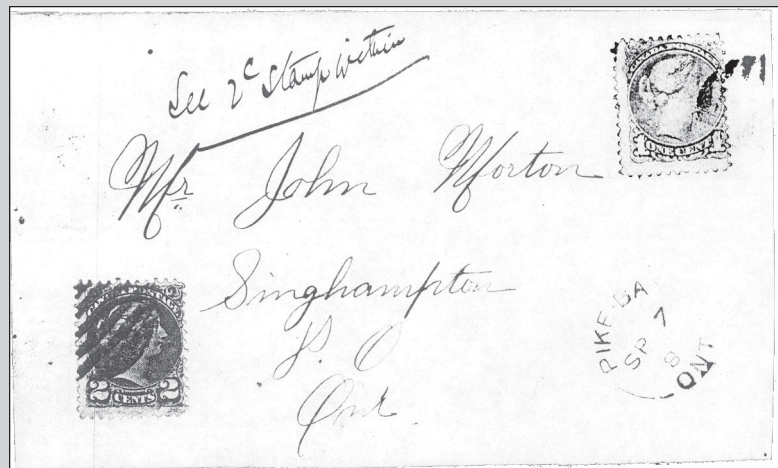 See 2c Stamp within
ONE CENT
Mr John Morton
Singhampton
P. O
Ont.
CANADA POSTAGE
2 CENTS 2
PIKE BA
SP 7
8
ONT